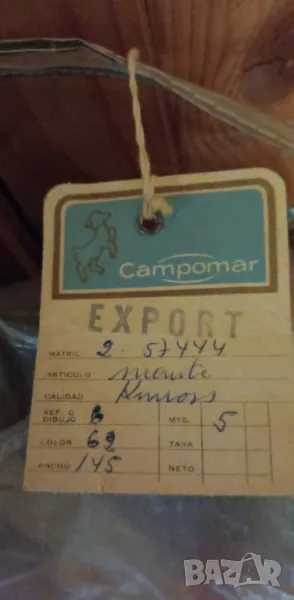 Campomar
EXPORT
MATRIC 2-57444
ARTICULO
CALIDAD
REF. O DIBUJO 6 MTS. 5
COLOR 62 TARA
ANCHO 145 NETO
BAZAR